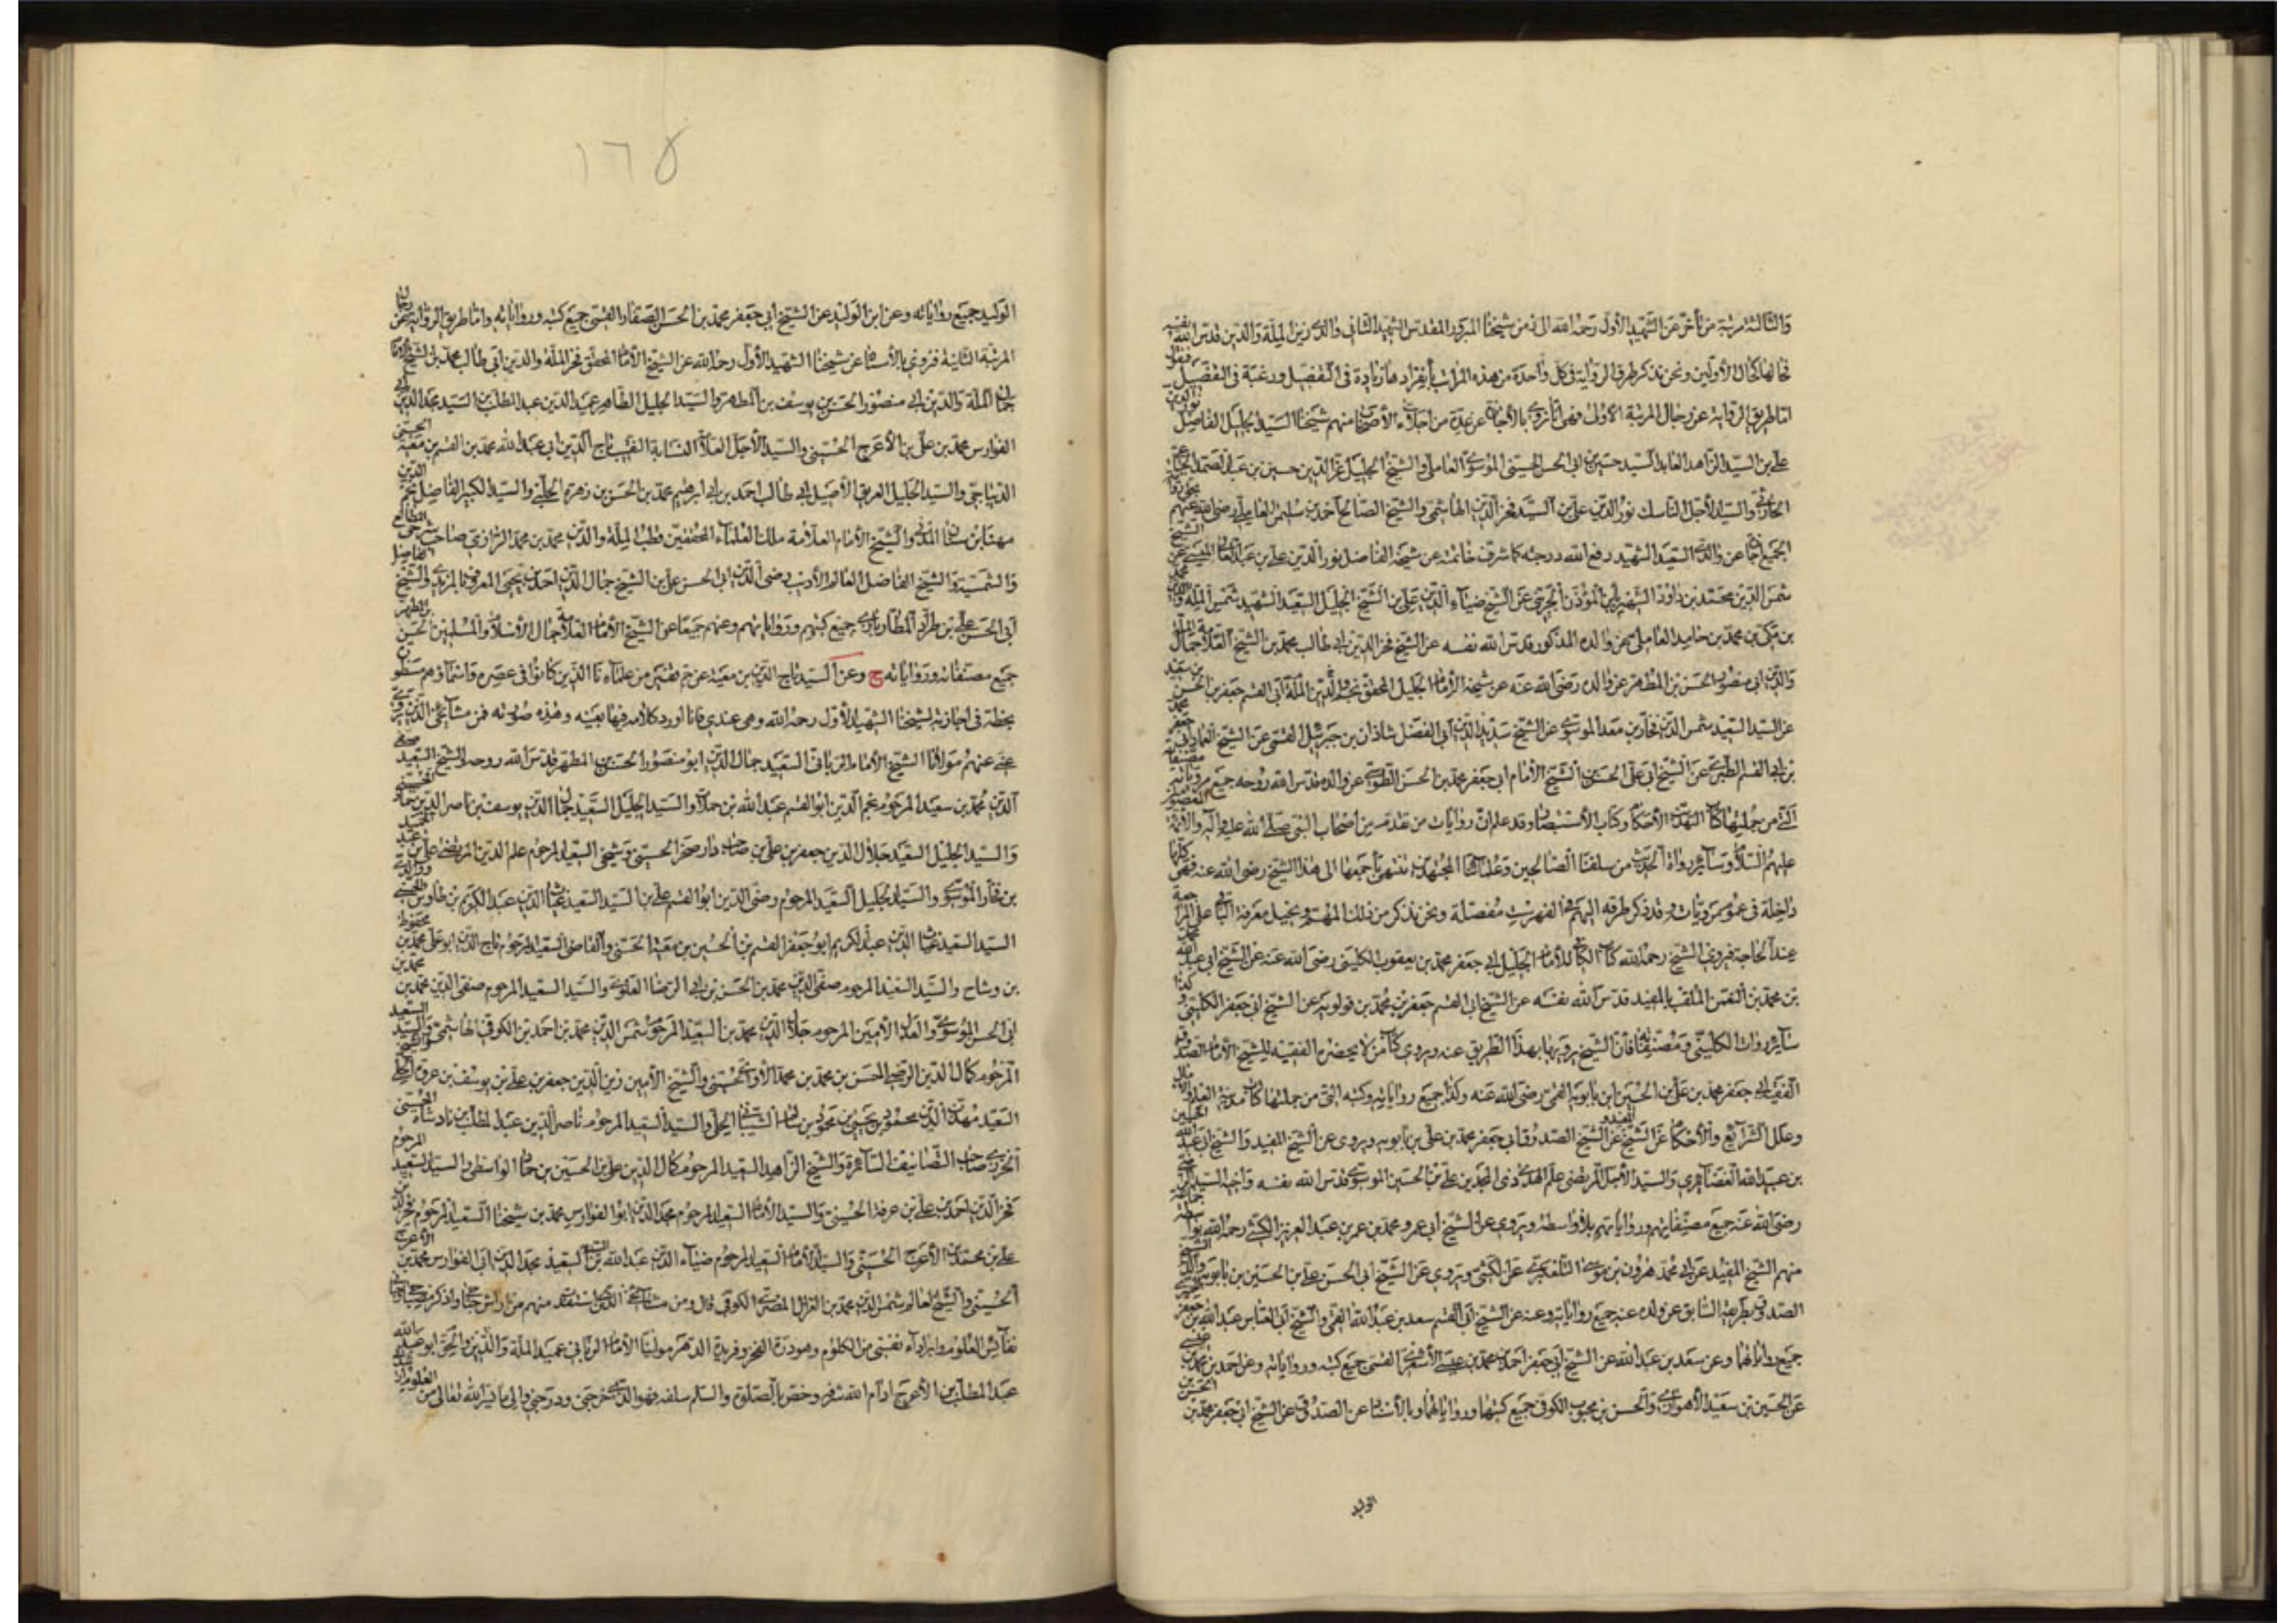 والثالثة مرتبة من تأخر عن الشهيد الأول رحمه الله الى زمن شيخنا المبرور المقدس الشهيد الثاني والدي زين الملة والدين قدس الله نفسه
كالأولين ونحن نذكر طرق الرواية في كل واحدة من هذه المراتب بانفرادها زيادة في التفصيل ورغبة في التفصيل فنقول
اما طريق الرواية عن رجال المرتبة الاولى فهي انا نروي بالأجازة عن عدة من اجلاء الأصحاب منهم شيخنا السيد الجليل الفاضل نور الدين
علي بن السيد الزاهد العابد السيد حسين بن ابي الحسن الحسيني الموسوي العاملي والشيخ الجليل عز الدين حسين بن عبد الصمد
الحارثي والسيد الأجل الناسك نور الدين علي بن السيد فخر الدين الهاشمي والشيخ الصالح احمد بن سليمان العاملي رضي الله عنهم بحق روا
الجميع عن والدي السعيد الشهيد رفع الله درجته كما شرف خاتمته عن شيخه الفاضل نور الدين علي بن عبد العالي الميسي عن الشيخ
شمس الدين محمد بن داود الشهير بابن المؤذن الجزيني عن الشيخ ضياء الدين علي بن الشيخ الجليل السعيد الشهيد شمس الملة والدين محمد
بن مكي بن محمد بن حامد العاملي عن والده المذكور قدس الله نفسه عن الشيخ فخر الدين ابي طالب محمد بن الشيخ العلامة جمال الملة
والدين ابي منصور الحسن بن المطهر عن والده رضي الله عنه عن شيخه الأمام الجليل المحقق نجم الدين الملة ابي القسم جعفر بن الحسن بن سعيد
عن السيد السعيد شمس الدين فخار بن معد الموسوي عن الشيخ سديد الدين ابي الفضل شاذان بن جبرئيل القمي عن الشيخ العماد ابي جعفر محمد
بن ابي القسم الطبري عن الشيخ ابي علي الحسن بن الشيخ الأمام ابي جعفر محمد بن الحسن الطوسي عن والده قدس الله روحه جميع مروياته مصنفاته
التي من جملتها كتاب التهذيب الأحكام وكتاب الأستبصار وقد علم ان روايات من تقدمه من اصحاب النبي صلى الله عليه وآله والأئمة المعصومين
عليهم السلام وسائر رواة الحديث من سلفنا الصالحين وعلمائنا المجتهدين تنتهي باجمعها الى هذا الشيخ رضي الله عنه فهي كلها
داخلة في عموم مروياته وقد ذكر طرقه اليهم في الفهرست مفصلة ونحن نذكر من ذلك المهم ونحيل معرفة الباقي على المراجعة
عند الحاجة فيروي الشيخ رحمه الله كتاب الكافي للأمام الجليل ابي جعفر محمد بن يعقوب الكليني رضي الله عنه عن الشيخ ابي عبد الله محمد
بن محمد بن النعمن الملقب بالمفيد قدس الله نفسه عن الشيخ ابي القسم جعفر بن محمد بن قولويه عن الشيخ ابي جعفر الكليني وكذا
سائر روايات الكليني ومصنفاته فان الشيخ يرويها بهذا الطريق عنه ويروي كتاب من لا يحضره الفقيه للشيخ الأمام الصدوق
الفقيه ابي جعفر محمد بن علي بن الحسين ابن بابويه القمي رضي الله عنه وكذا جميع رواياته وكتبه التي من جملتها كتاب مدينة العلم والامالي
وعلل الشرائع والأحكام عن الشيخ عن الشيخ الصدوق ابي جعفر محمد بن علي بن بابويه ويروي عن الشيخ المفيد والشيخ ابي عبد الله الحسين
بن عبيد الله الغضائري والسيد الأجل المرتضى علم الهدى ذي المجدين علي بن الحسين الموسوي قدس الله نفسه واخيه السيد الرضي
رضي الله عنه جميع مصنفاتهم ورواياتهم بلا واسطة ويروي عن الشيخ ابي عمرو محمد بن عمر بن عبد العزيز الكشي رحمه الله بواسطة جماعة
منهم الشيخ المفيد عن ابي محمد هرون بن موسى التلعكبري عن الكشي ويروي عن الشيخ ابي الحسن علي بن الحسين بن بابويه والد الشيخ
الصدوق بطريقه السابق عن ولده عنه جميع رواياته وعنه عن الشيخ ابي القسم سعد بن عبد الله القمي والشيخ ابي العباس عبد الله بن جعفر الحميري
جميع رواياتهما وعن سعد بن عبد الله عن الشيخ ابي جعفر احمد بن محمد بن عيسى الأشعري القمي جميع كتبه ورواياته وعن احمد بن محمد بن عيسى
عن الحسين بن سعيد الأهوازي والحسن بن محبوب الكوفي جميع كتبهما ورواياتهما وبالأسناد عن الصدوق عن الشيخ ابي جعفر محمد بن الحسن بن
الوليد
١٦٥
الوليد جميع رواياته وعن ابن الوليد عن الشيخ ابي جعفر محمد بن الحسن الصفار القمي جميع كتبه ورواياته واما طريق الرواية عن رجال
المرتبة الثانية فنروي بالأسناد عن شيخنا الشهيد الأول رحمه الله عن الشيخ الأمام المحقق فخر الملة والدين ابي طالب محمد بن الشيخ الأمام
جمال الملة والدين ابي منصور الحسن بن يوسف بن المطهر والسيد الجليل الطاهر عميد الدين عبد المطلب بن السيد مجد الدين ابي
الفوارس محمد بن علي بن الأعرج الحسيني والسيد الأجل العلامة النسابة النقيب تاج الدين ابي عبد الله محمد بن القسم بن معية الحسني
الديباجي والسيد الجليل العريق الأصيل ابي طالب احمد بن ابي ابرهيم محمد بن الحسن بن زهرة الحلبي والسيد الكبير الفاضل نجم الدين
مهنا بن سنان المدني والشيخ الأمام العلامة ملك العلماء المحققين قطب الملة والدين محمد بن محمد الرازي صاحب شرحي المطالع
والشمسية والشيخ الفاضل العالم الأديب رضي الدين ابي الحسن علي بن الشيخ جمال الدين احمد بن يحيى المعروف بالمزيدي والشيخ الفاضل
ابي الحسن علي بن طراد المطارباذي جميع كتبهم ورواياتهم وعنهم جميعا عن الشيخ الأمام العلامة جمال الأسلام والمسلمين الحسن بن المطهر
جميع مصنفاته ورواياته ح وعن السيد تاج الدين بن معية عن جم غفير من علماءنا الذين كانوا في عصره واسماؤهم مسطورة
بخطه في اجازته لشيخنا الشهيد الأول رحمه الله وهي عندي فانا اورد كلامه فيها بعينه وهذه صورته فمن مشايخي الذين يروي
عني عنهم مولانا الشيخ الأمام الرباني السعيد جمال الدين ابو منصور الحسن بن المطهر قدس الله روحه والشيخ السعيد صفي
الدين محمد بن سعيد المرحوم نجم الدين ابو القسم عبد الله بن حملات والسيد الجليل السعيد جمال الدين يوسف بن ناصر الدين حماد الحسيني
والسيد الجليل السعيد جلال الدين جعفر بن علي بن صاحب دار صخر الحسيني وشيخي السعيد المرحوم علم الدين المرتضى علي بن عبد الحميد
بن فخار الموسوي والسيد الجليل السعيد المرحوم رضي الدين ابو القسم علي بن السيد السعيد غياث الدين عبد الكريم بن طاوس الحسني ووالدي
السيد السعيد غياث الدين عبد الكريم ابو جعفر القسم بن الحسين بن معية الحسني والقاضي السعيد المرحوم تاج الدين ابو علي محمد بن محفوظ
بن وشاح والسيد السعيد المرحوم صفي الدين محمد بن الحسن بن ابي الرضا العلوي والسيد السعيد المرحوم صفي الدين محمد بن محمد بن
ابي الحسن الموسوي والعدل الأمين المرحوم جلال الدين محمد بن السعيد المرحوم شمس الدين محمد بن احمد بن الكوفي الهاشمي والسيد السعيد
المرحوم كمال الدين الرضي الحسن بن محمد بن محمد الأوي الحسيني والشيخ الأمين زين الدين جعفر بن علي بن يوسف بن عروة الحلي والشيخ
السعيد مهذب الدين محمود بن يحيى بن محمود بن سالم الشيباني الحلي والسيد السعيد المرحوم ناصر الدين عبد المطلب بن بادشاه الحسيني
الخرزي صاحب التصانيف السائرة والشيخ الزاهد السعيد المرحوم كمال الدين علي بن الحسين بن حماد الواسطي والسيد السعيد المرحوم
فخر الدين احمد بن علي بن عرفة الحسيني والسيد الأمام السعيد المرحوم مجد الدين ابو الفوارس محمد بن شيخنا السعيد المرحوم فخر الدين
علي بن محمد بن الأعرج الحسيني والسيد الأمام السعيد المرحوم ضياء الدين عبد الله بن السيد السعيد مجد الدين ابي الفوارس محمد بن الأعرج
الحسيني والشيخ العالم شمس الدين محمد بن الغزال المضري الكوفي قال ومن مشايخي الذين استفدت منهم من
نفائس العلوم وابراء نفسي من الكلوم وهو درة الفخر وفريدة الدهر مولينا الأمام الرباني عميد الملة والدين والحق ابو عبد الله
عبد المطلب بن الأعرج ادام الله شرفه وخص بالصلوة والسلم سلفه فهو الذي خرجني ودرجني والى ما يسر الله تعالى من العلوم